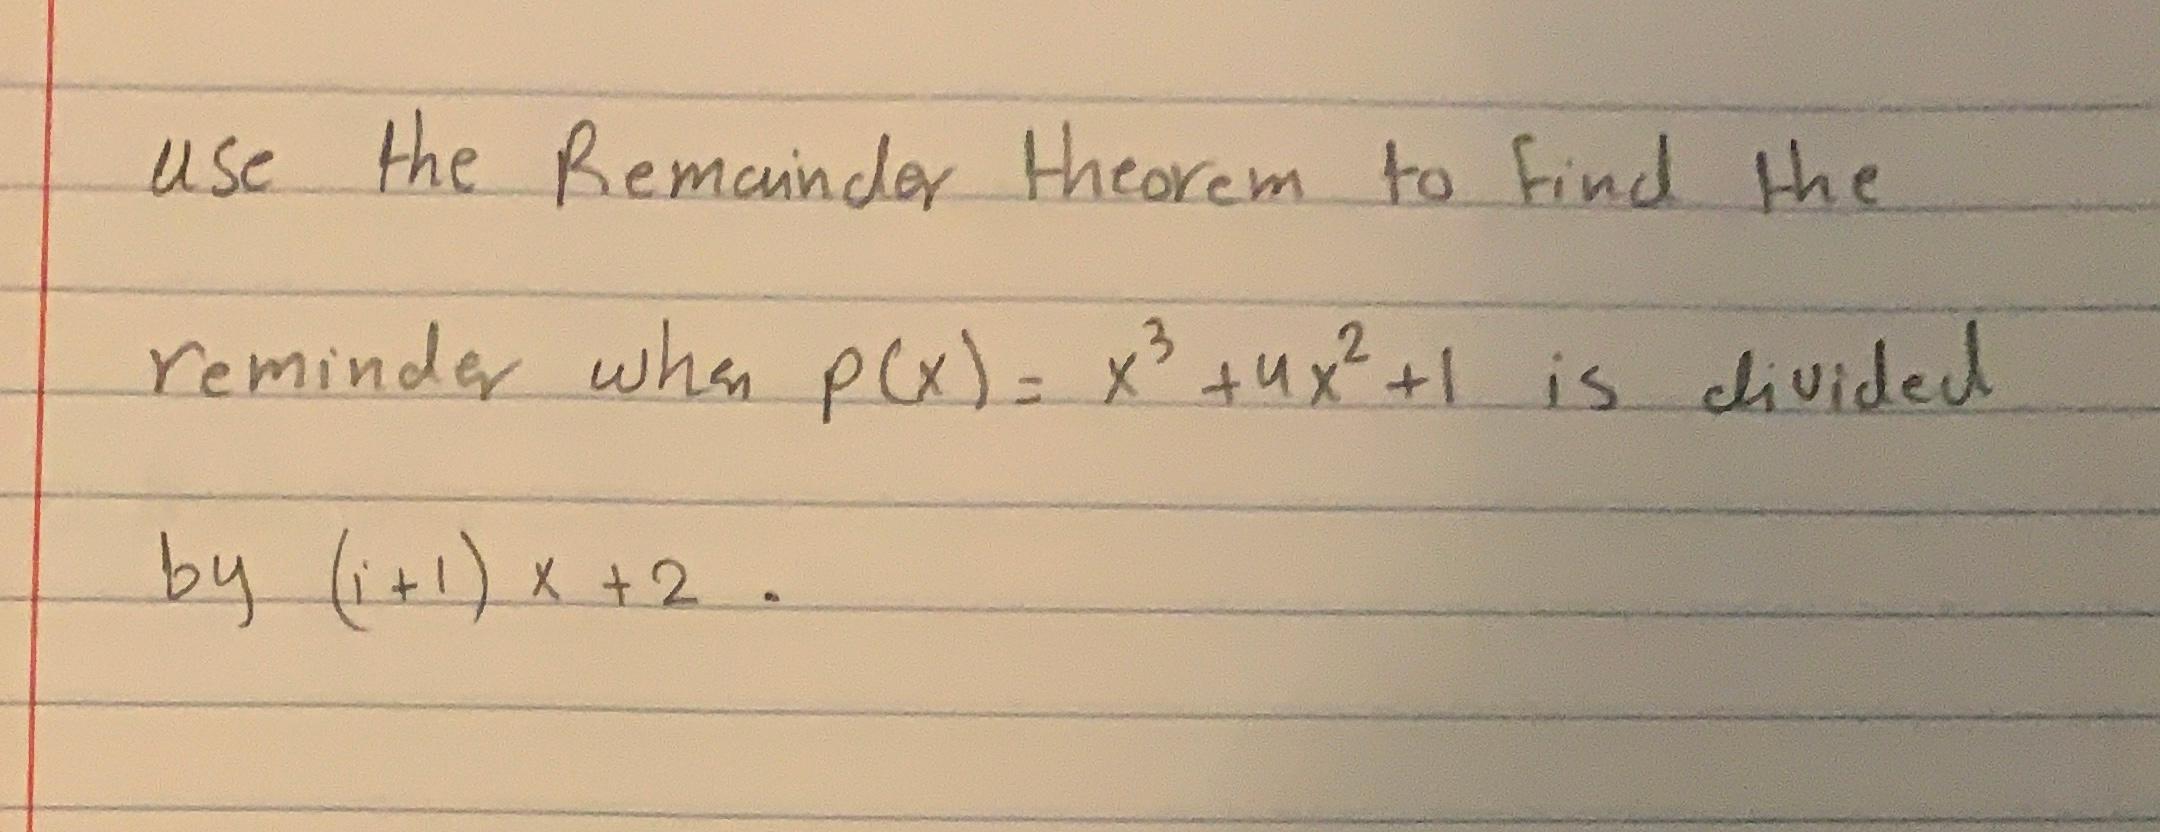 use the Remainder theorem to find the
reminder when p(x) = x³ + 4x² + 1 is divided
by (i+1) x + 2 .